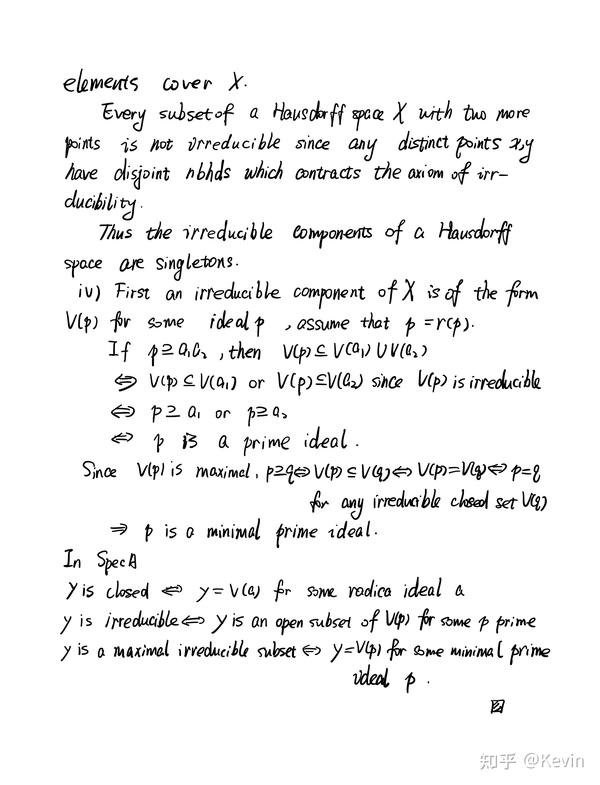 elements cover X.
Every subset of a Hausdorff space X with two more
points is not irreducible since any distinct points x,y
have disjoint nbhds which contracts the axiom of irr-
ducibility.
Thus the irreducible components of a Hausdorff
space are singletons.
iv) First an irreducible component of X is of the form
V(p) for some ideal p , assume that p = r(p).
If p ⊇ a₁a₂ , then V(p) ⊆ V(a₁) ∪ V(a₂)
⇔ V(p) ⊆ V(a₁) or V(p) ⊆ V(a₂) since V(p) is irreducible
⇔ p ⊇ a₁ or p ⊇ a₂
⇔ p is a prime ideal .
Since V(p) is maximal, p ⊇ q ⇔ V(p) ⊆ V(q) ⇔ V(p) = V(q) ⇔ p = q
for any irreducible closed set V(q)
⇒ p is a minimal prime ideal.
In Spec A
Y is closed ⇔ Y = V(a) for some radica ideal a
Y is irreducible ⇔ Y is an open subset of V(p) for some p prime
Y is a maximal irreducible subset ⇔ Y = V(p) for some minimal prime
ideal p .
知乎 @Kevin